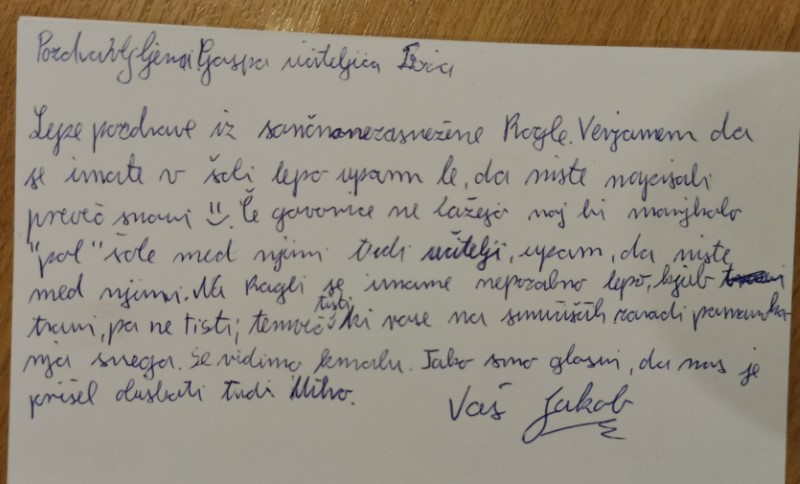 Pozdravljena Gaspa učiteljica
Lepe pozdrave iz sončnonezasnežene Rogle. Verjamem da
se imate v šoli lepo upam le, da niste napisali
preveč snovi :). Če govorice ne lažejo naj bi manjkalo
"pol" šole med njimi tudi učitelji, upam, da niste
med njimi. Na Rogli se imamo nepozabno lepo, kljub
travi, pa ne tisti, temveč tisti ki rase na smučiščih zaradi pomanka
nja snega. Se vidimo kmalu. Tako smo glasni, da nas je
prišel obiskati tudi Miho.
Vaš Jakob